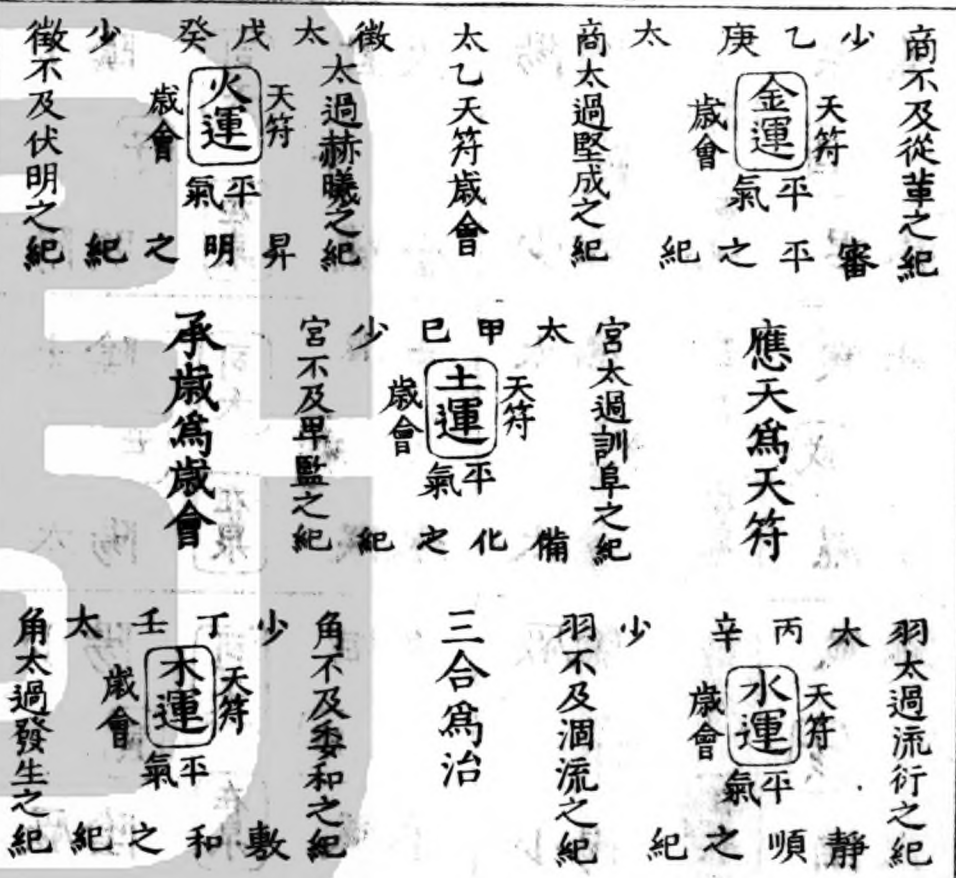 商不及從革之紀
少乙庚太
天符
金運
歲會
平氣
審平之紀
商太過堅成之紀
太乙天符歲會
徵太過赫曦之紀
太戊癸少
天符
火運
歲會
平氣
昇明之紀
徵不及伏明之紀
應天爲天符
宮太過訓阜之紀
太甲巳少
天符
土運
歲會
平氣
備化之紀
宮不及卑監之紀
承歲爲歲會
羽太過流衍之紀
太丙辛少
天符
水運
歲會
平氣
靜順之紀
羽不及涸流之紀
三合爲治
角不及委和之紀
少丁壬太
天符
木運
歲會
平氣
敷和之紀
角太過發生之紀